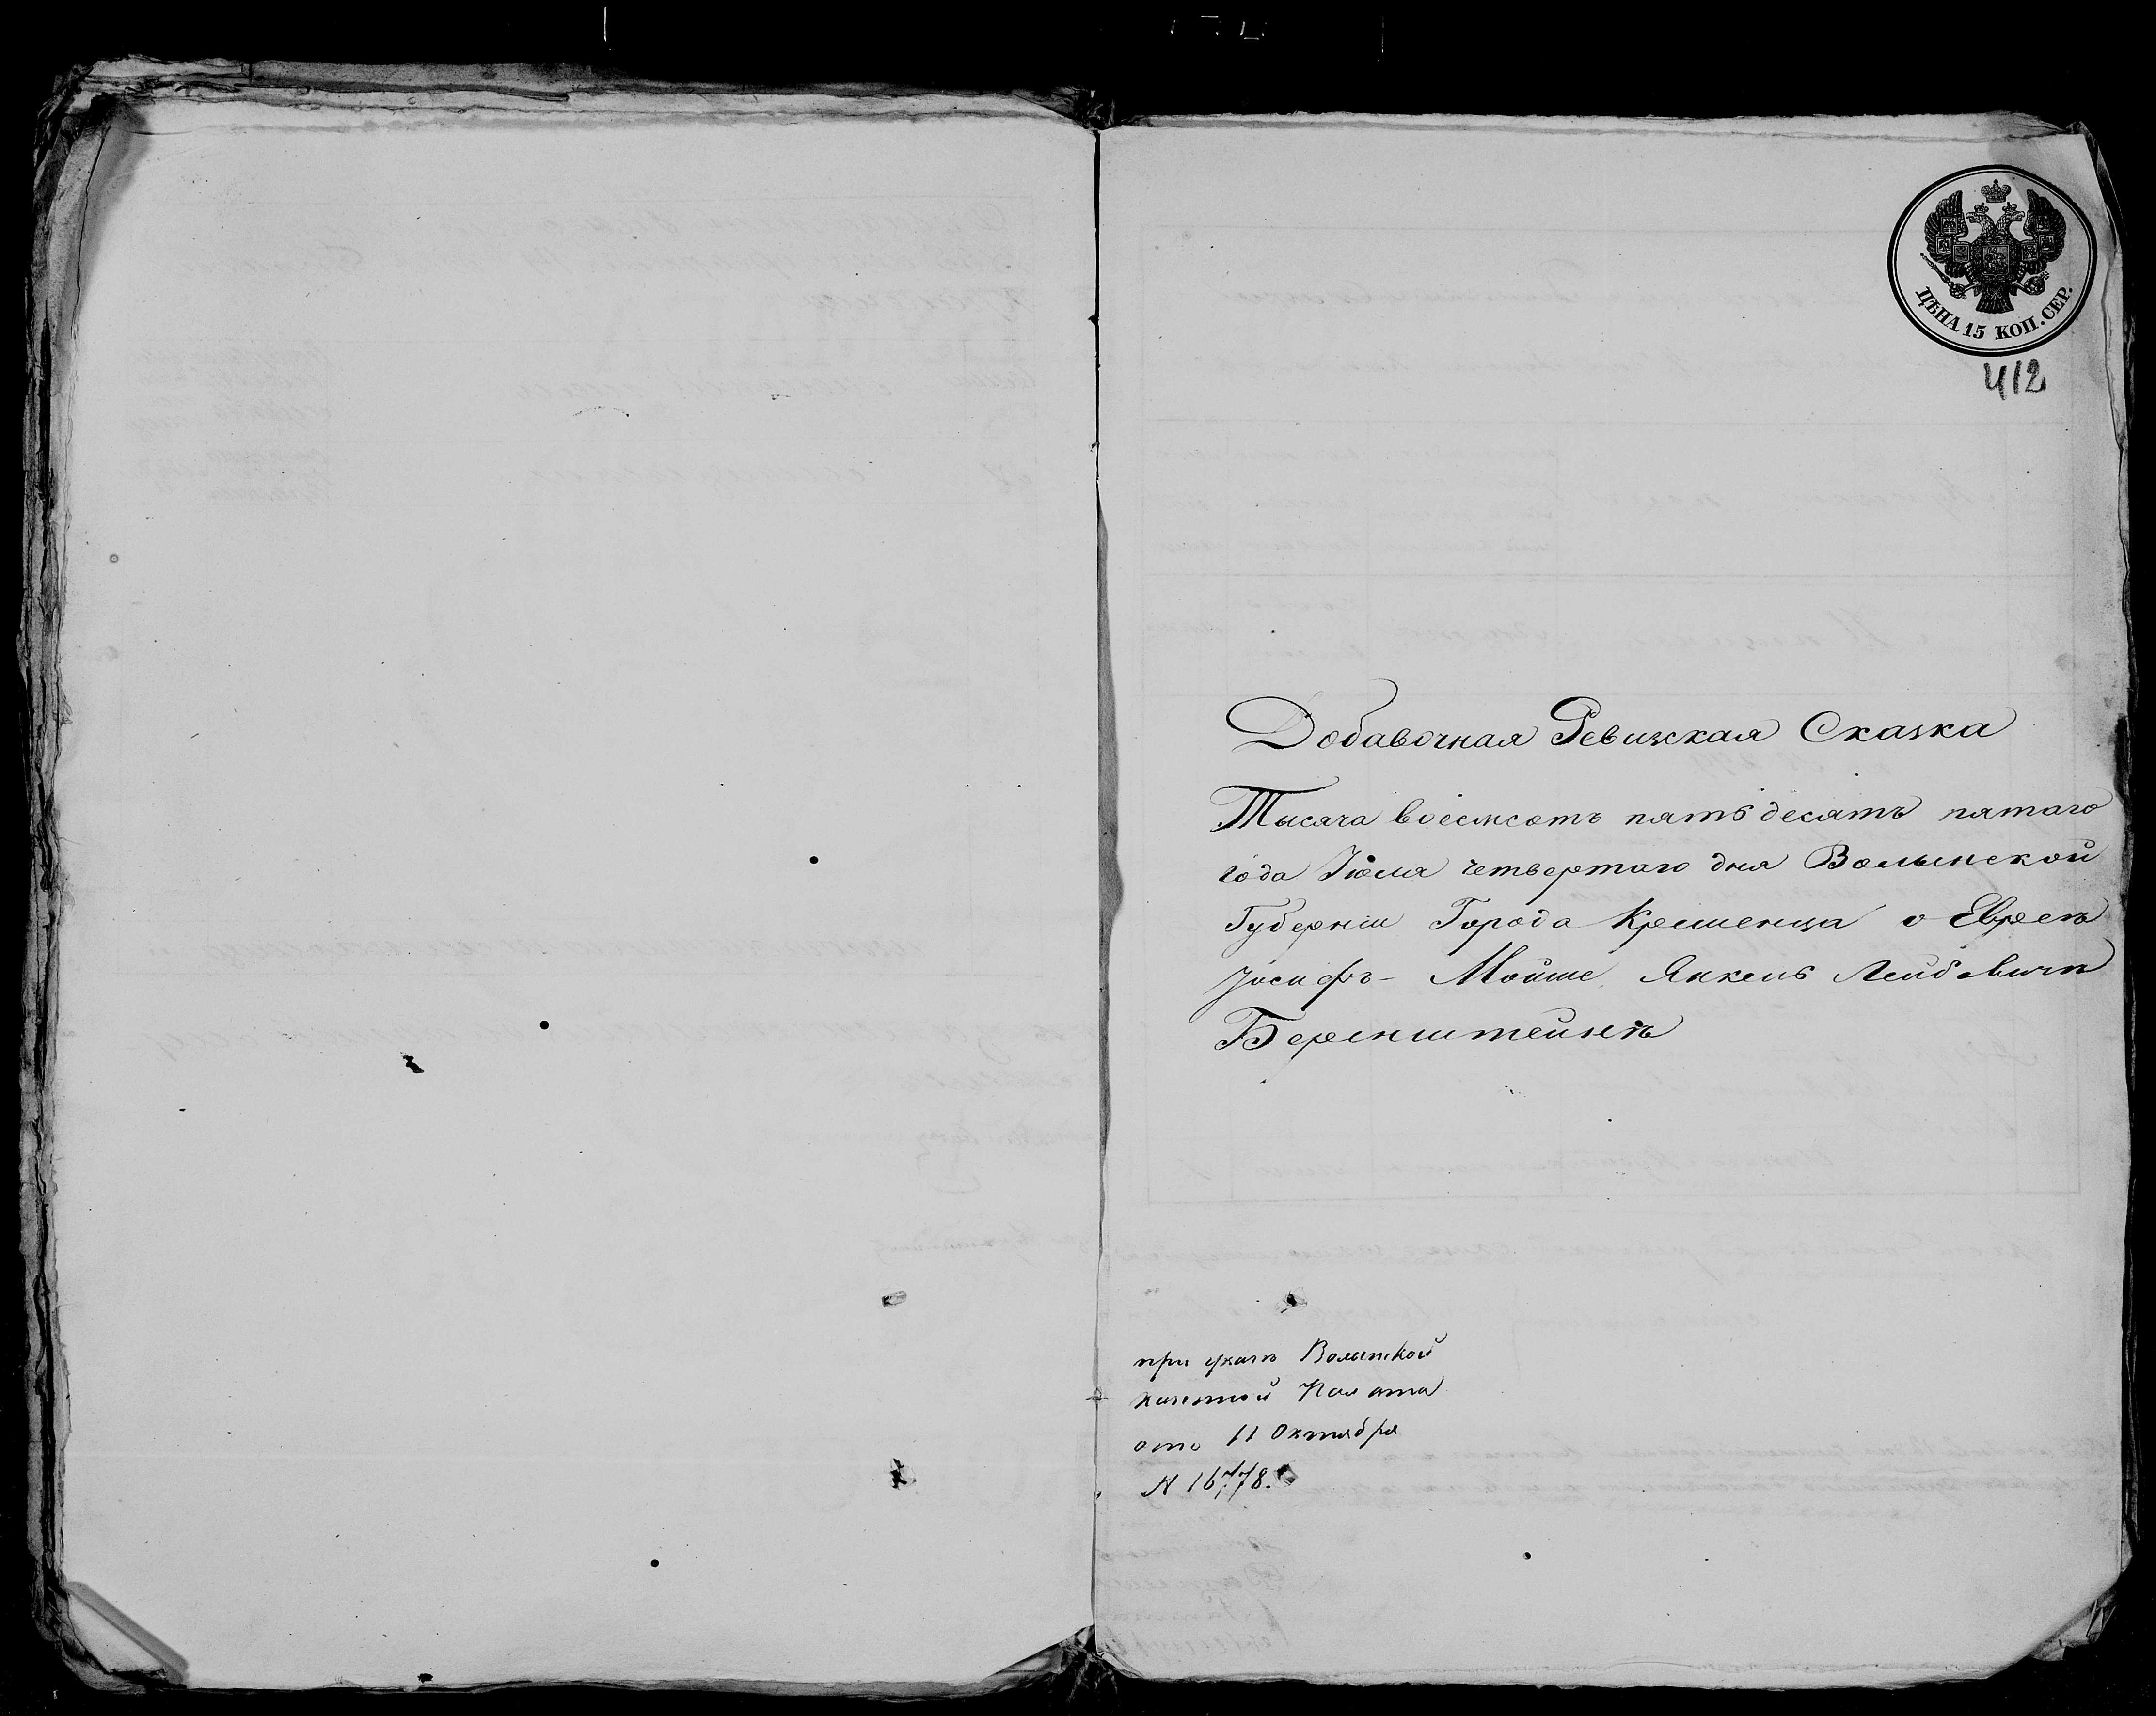 ЦѢНА 15 КОП. СЕР.
412
Добавочная Ревизская Сказка
Тысяча восемсотъ пятьдесятъ пятаго
года Іюля четвертаго дня Волынской
Губерніи Города Кременца о Евреѣ
Іосифъ-Мойше Янкель Лейбовичѣ
Беренштейнѣ
при указѣ Волынской
казенной Палаты
отъ 11 Октября
№ 16778.